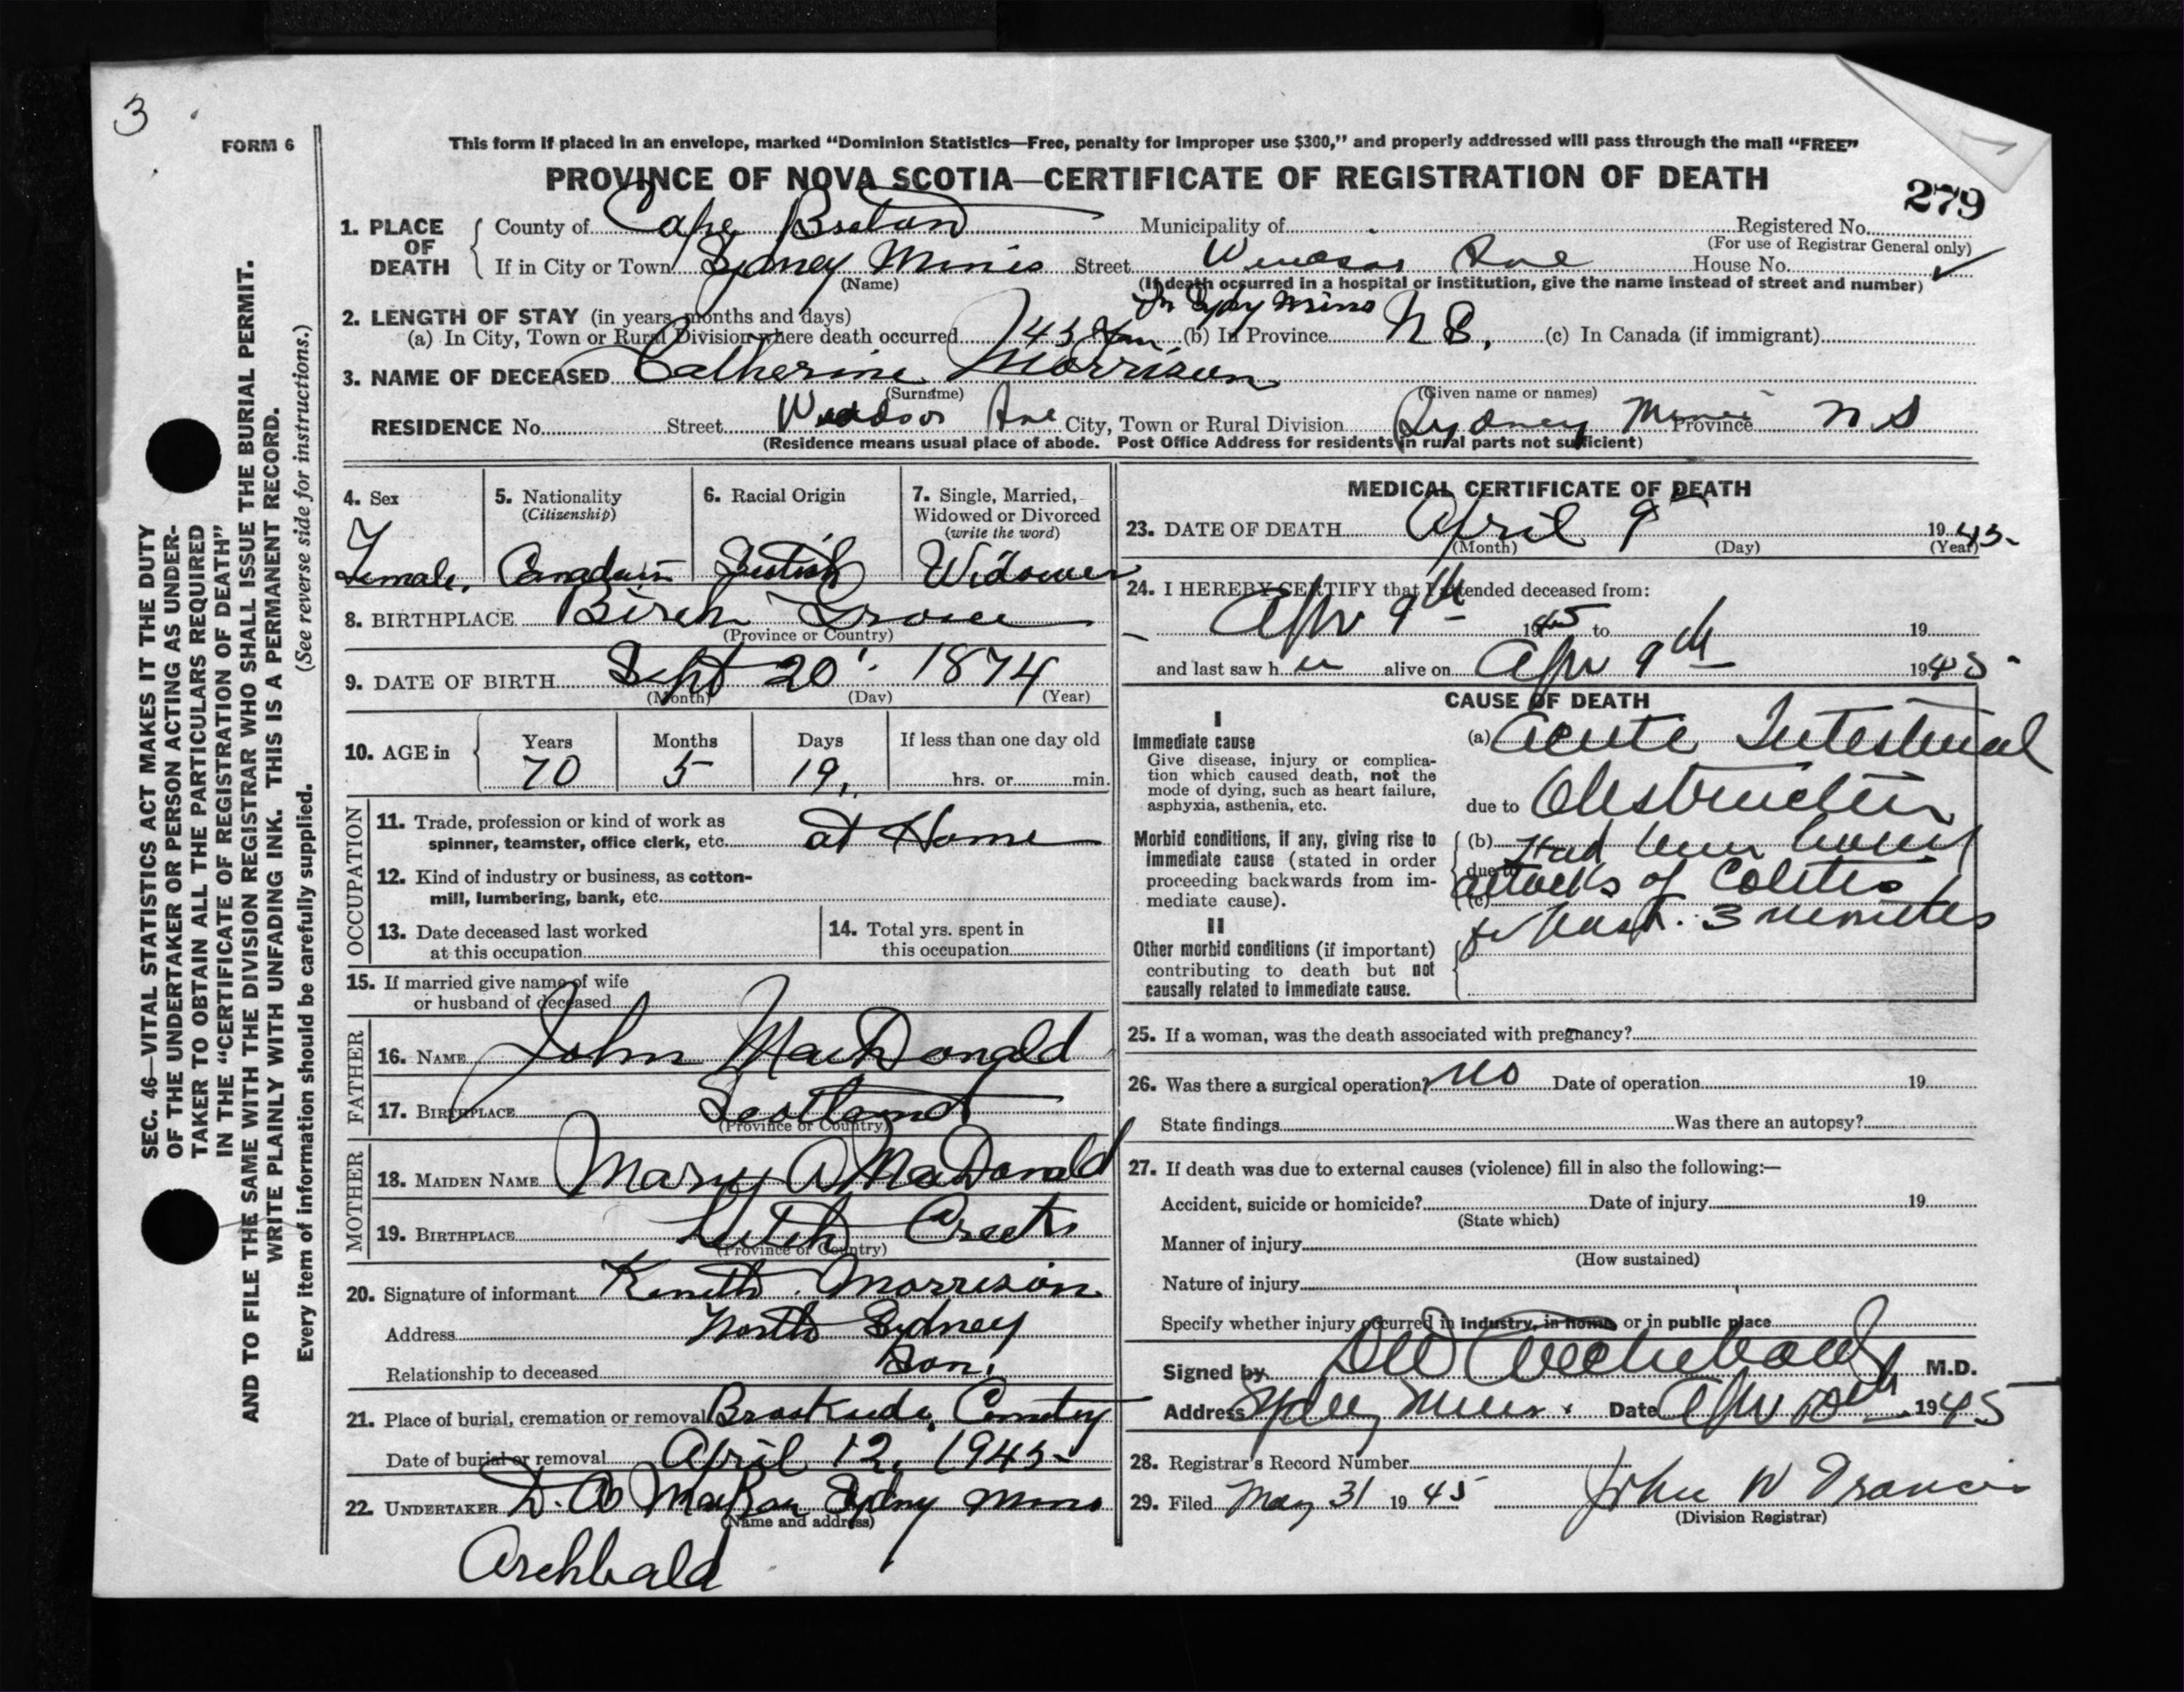 3
FORM 6
This form if placed in an envelope, marked "Dominion Statistics—Free, penalty for improper use $300," and properly addressed will pass through the mail "FREE"
PROVINCE OF NOVA SCOTIA—CERTIFICATE OF REGISTRATION OF DEATH
279
1. PLACE OF DEATH
County of Cape Breton Municipality of Registered No.
(For use of Registrar General only)
If in City or Town Sydney Mines Street Windsor Ave House No. ✓
(Name) (If death occurred in a hospital or institution, give the name instead of street and number)
2. LENGTH OF STAY (in years, months and days) In Sydy Mines
(a) In City, Town or Rural Division where death occurred 43 (b) In Province N S. (c) In Canada (if immigrant)
3. NAME OF DECEASED Catherine Morrison
(Surname) (Given name or names)
RESIDENCE No. Street Windsor Ave City, Town or Rural Division Sydney Mines Province N S
(Residence means usual place of abode. Post Office Address for residents in rural parts not sufficient)
4. Sex
Female,
5. Nationality
(Citizenship)
Canadain
6. Racial Origin
7. Single, Married, Widowed or Divorced
(write the word)
Widower
8. BIRTHPLACE Birch Grove
(Province or Country)
9. DATE OF BIRTH Sept 20 1874
(Month) (Day) (Year)
10. AGE in
Years Months Days If less than one day old
70 5 19 hrs. or min.
OCCUPATION
11. Trade, profession or kind of work as
spinner, teamster, office clerk, etc. at Home
12. Kind of industry or business, as cotton-
mill, lumbering, bank, etc.
13. Date deceased last worked
at this occupation
14. Total yrs. spent in
this occupation
15. If married give name of wife
or husband of deceased
FATHER
16. NAME John MacDonald
17. BIRTHPLACE Scotland
(Province or Country)
MOTHER
18. MAIDEN NAME Mary A MacDonald
19. BIRTHPLACE
(Province or Country)
20. Signature of informant Kenneth Morrison
Address North Sydney
Relationship to deceased Son.
21. Place of burial, cremation or removal Brookside, Cemetery
Date of burial or removal April 12, 1945
22. UNDERTAKER D. A. Sydny Mines
(Name and address)
Archbald
MEDICAL CERTIFICATE OF DEATH
23. DATE OF DEATH April 9 1945
(Month) (Day) (Year)
24. I HEREBY CERTIFY that I attended deceased from:
Apr 9th 1945 to 19
and last saw h er alive on Apr 9th 1945
CAUSE OF DEATH
I
Immediate cause
Give disease, injury or complica-
tion which caused death, not the
mode of dying, such as heart failure,
asphyxia, asthenia, etc.
(a) Acute Intestinal
due to Obstruction
Morbid conditions, if any, giving rise to
immediate cause (stated in order
proceeding backwards from im-
mediate cause).
(b) Had
due to attacks of Colitis
(c) past 3 minutes
II
Other morbid conditions (if important)
contributing to death but not
causally related to immediate cause.
25. If a woman, was the death associated with pregnancy?
26. Was there a surgical operation? No Date of operation 19
State findings Was there an autopsy?
27. If death was due to external causes (violence) fill in also the following:—
Accident, suicide or homicide? Date of injury 19
(State which)
Manner of injury
(How sustained)
Nature of injury
Specify whether injury occurred in industry, in home or in public place
Signed by Archibald M.D.
Address Sydney Mines. Date Apr 1945
28. Registrar's Record Number
29. Filed May 31 1945 John W Francis
(Division Registrar)
SEC. 46—VITAL STATISTICS ACT MAKES IT THE DUTY
OF THE UNDERTAKER OR PERSON ACTING AS UNDER-
TAKER TO OBTAIN ALL THE PARTICULARS REQUIRED
IN THE "CERTIFICATE OF REGISTRATION OF DEATH"
AND TO FILE THE SAME WITH THE DIVISION REGISTRAR WHO SHALL ISSUE THE BURIAL PERMIT.
WRITE PLAINLY WITH UNFADING INK. THIS IS A PERMANENT RECORD.
Every item of information should be carefully supplied. (See reverse side for instructions.)